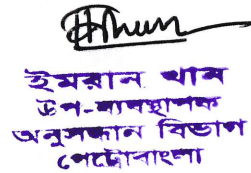 ইমরান খান
উপ-ব্যবস্থাপক
অনুসন্ধান বিভাগ
পেট্রোবাংলা